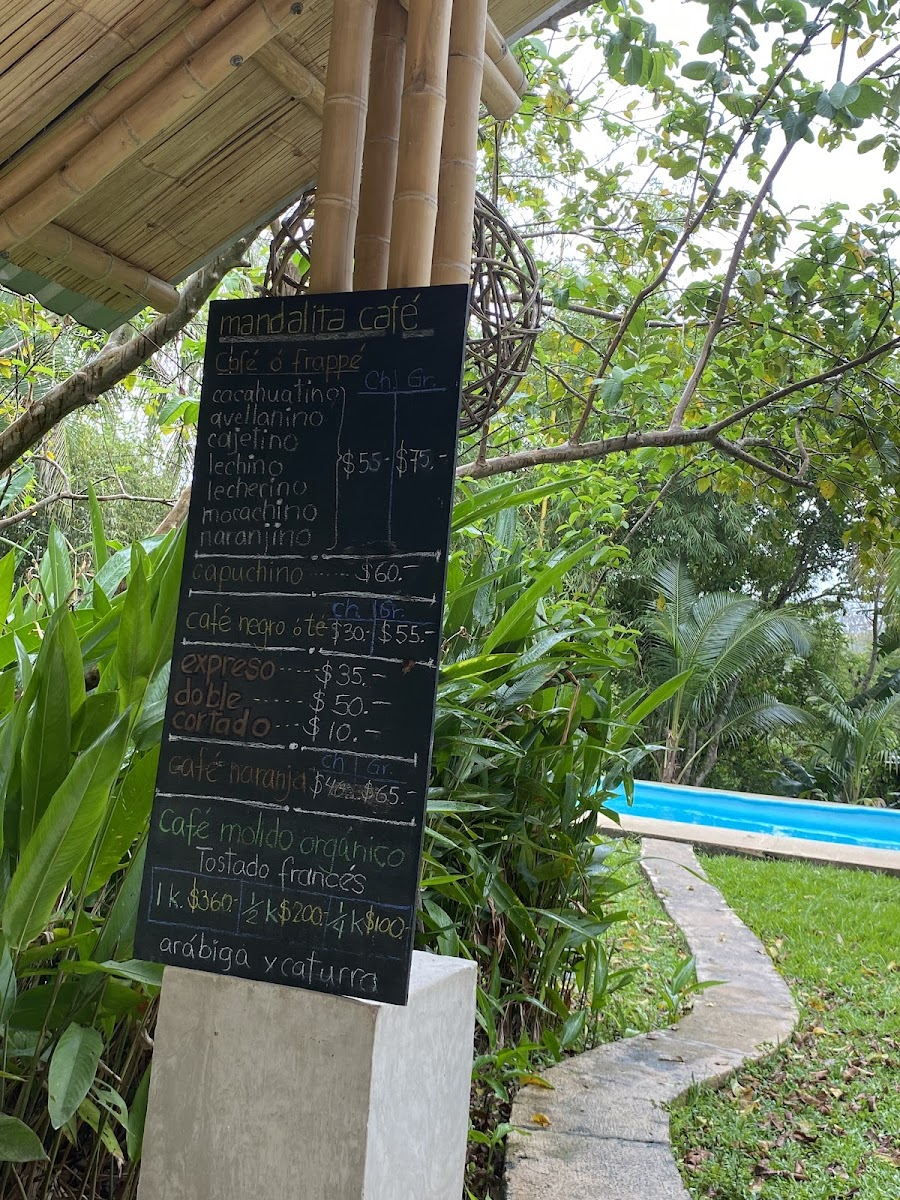 mandalita café
Café ó frappé
Ch. Gr.
cacahuatino
avellanino
cajetino
lechino $55.- $75.-
lecherino
mocachino
naranjino
capuchino ...... $60.-
ch. Gr.
café negro ó té $30.- $55.-
expreso ---- $35.-
doble ------- $50.-
cortado ---- $10.-
ch. Gr.
café naranja $65.-
café molido orgánico
Tostado francés
1 k. $360.- ½ k $200.- ¼ k $100.
arábiga y caturra